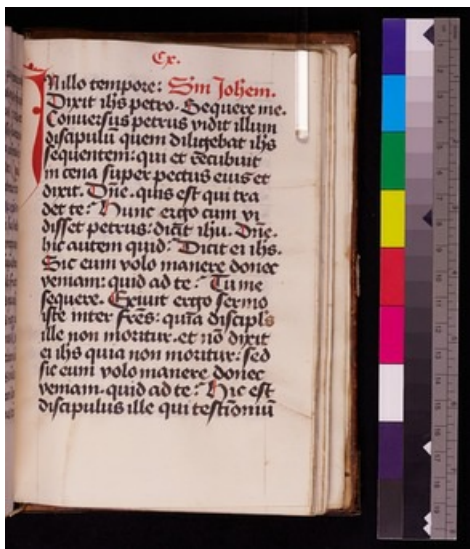 Cx.
IN illo tempore: Sm Johem.
Dixit ihs petro. Sequere me.
Conuersus petrus vidit illum
discipulū quem diligebat ihs
sequentem: qui et recūbuit
in cena super pectus eius et
dixit. Dn̄e. quis est qui tra
det te? Hunc ergo cum vi
disset petrus: dicit ihu. Dn̄e.
hic autem quid? Dicit ei ihs.
Sic eum volo manere donec
veniam: quid ad te? Tu me
sequere. Exiuit ergo sermo
iste inter fr̄es: quia discipl̄s
ille non moritur. et nō dixit
ei ihs quia non moritur: sed
sic eum volo manere donec
veniam. quid ad te? Hic est
discipulus ille qui testīoniū